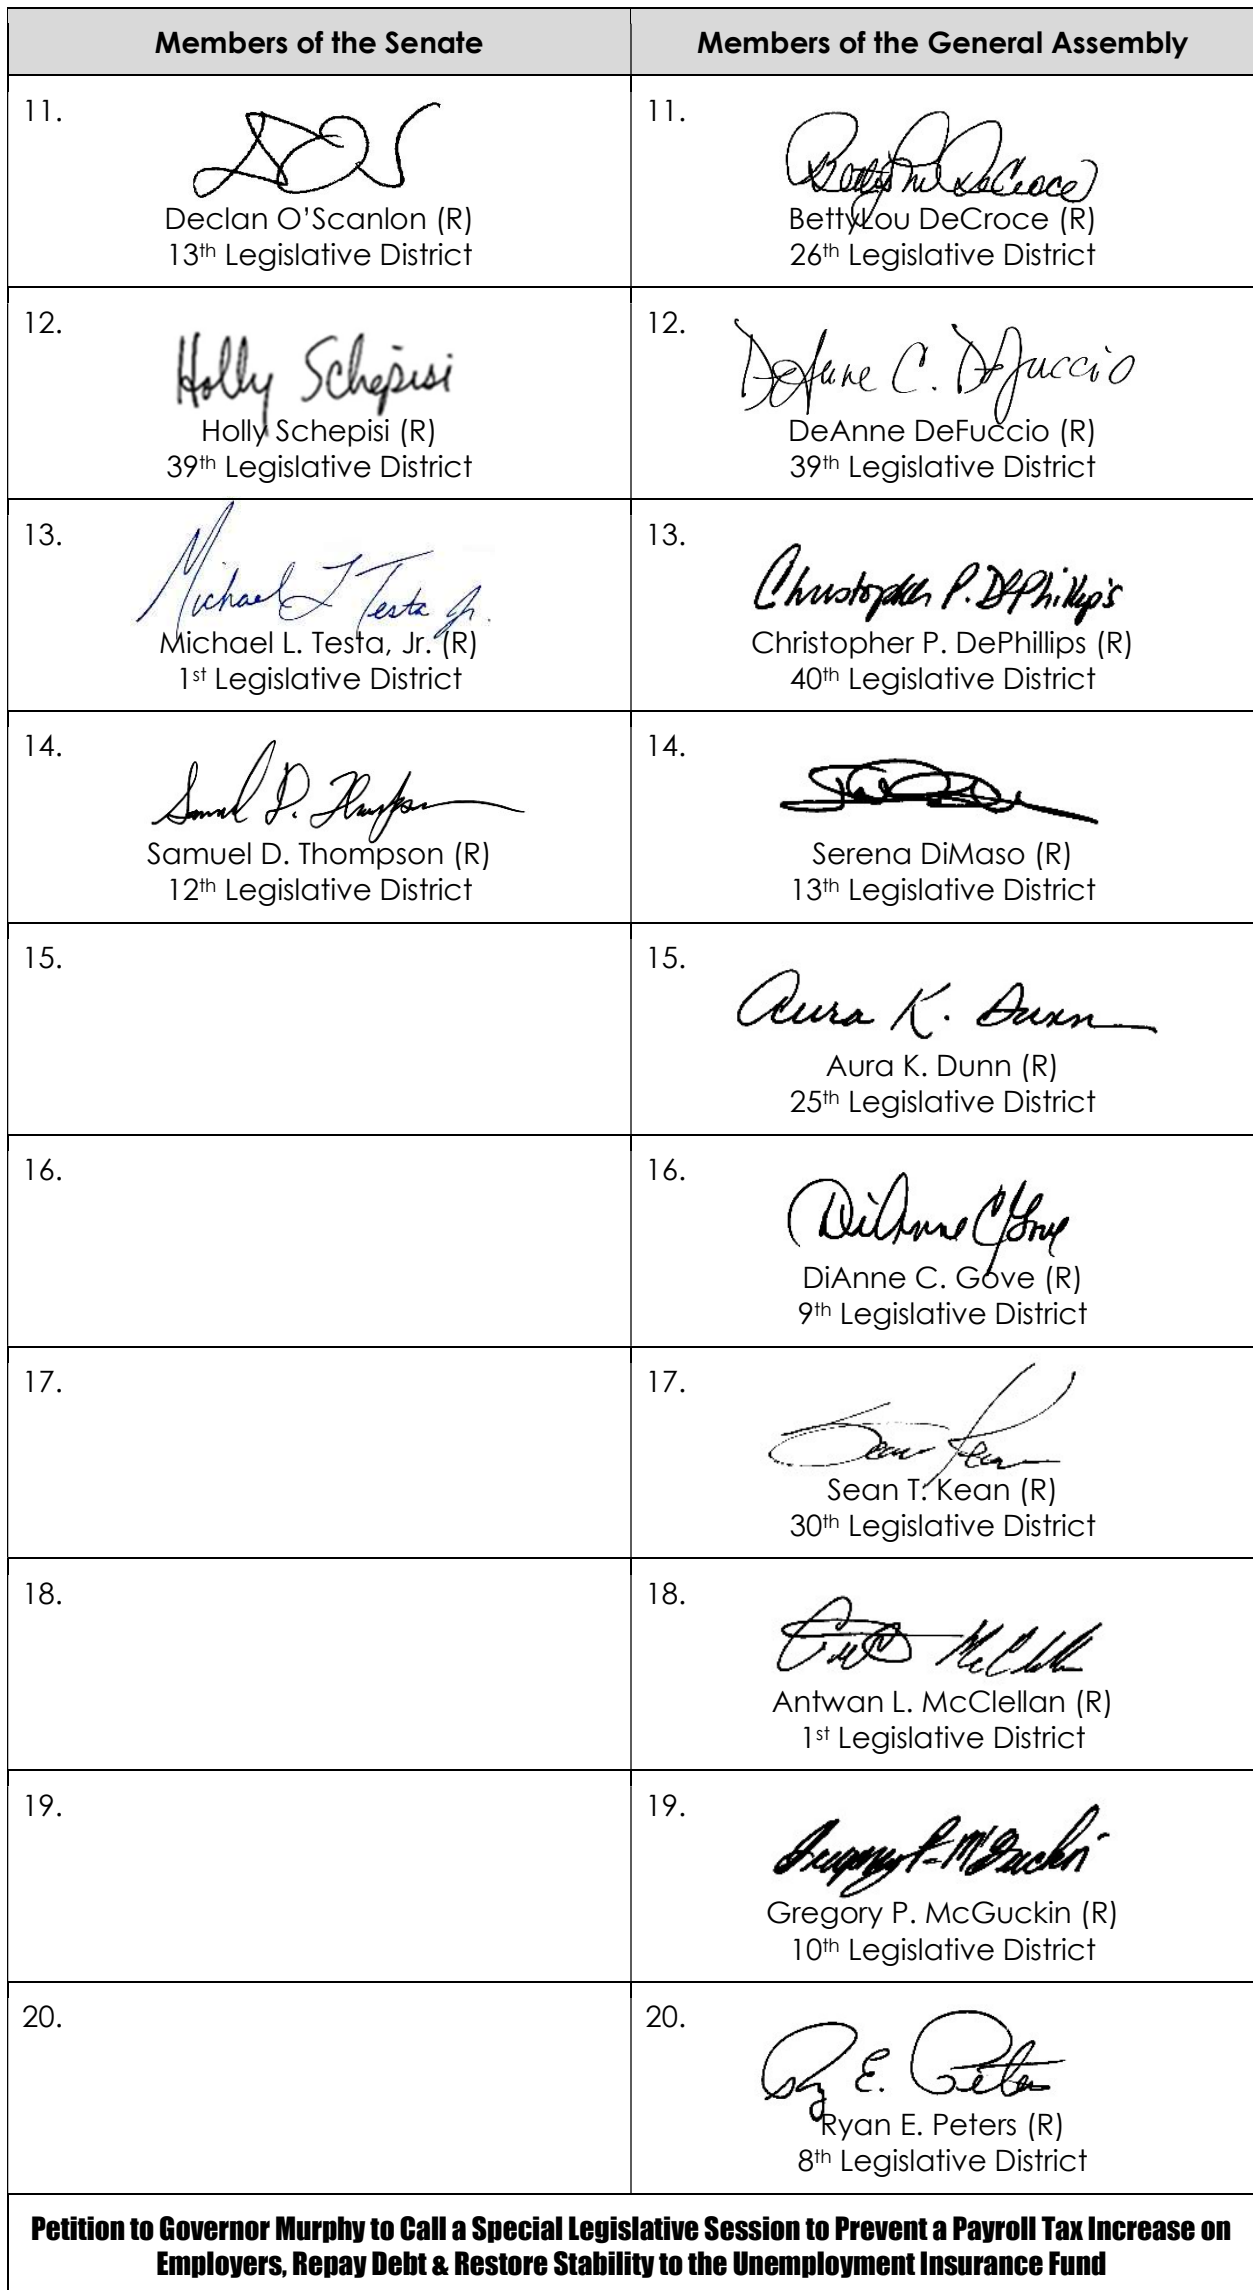 Members of the Senate
Members of the General Assembly
11.
Declan O'Scanlon (R)
13th Legislative District
11.
BettyLou DeCroce
BettyLou DeCroce (R)
26th Legislative District
12.
Holly Schepisi
Holly Schepisi (R)
39th Legislative District
12.
DeAnne C. DeFuccio
DeAnne DeFuccio (R)
39th Legislative District
13.
Michael L Testa Jr.
Michael L. Testa, Jr. (R)
1st Legislative District
13.
Christopher P. DePhillips
Christopher P. DePhillips (R)
40th Legislative District
14.
Samuel D. Thompson
Samuel D. Thompson (R)
12th Legislative District
14.
Serena DiMaso (R)
13th Legislative District
15.
15.
Aura K. Dunn
Aura K. Dunn (R)
25th Legislative District
16.
16.
DiAnne C Gove
DiAnne C. Gove (R)
9th Legislative District
17.
17.
Sean Kean
Sean T. Kean (R)
30th Legislative District
18.
18.
Antwan L. McClellan (R)
1st Legislative District
19.
19.
Gregory P. McGuckin
Gregory P. McGuckin (R)
10th Legislative District
20.
20.
Ryan E. Peters (R)
8th Legislative District
Petition to Governor Murphy to Call a Special Legislative Session to Prevent a Payroll Tax Increase on
Employers, Repay Debt & Restore Stability to the Unemployment Insurance Fund